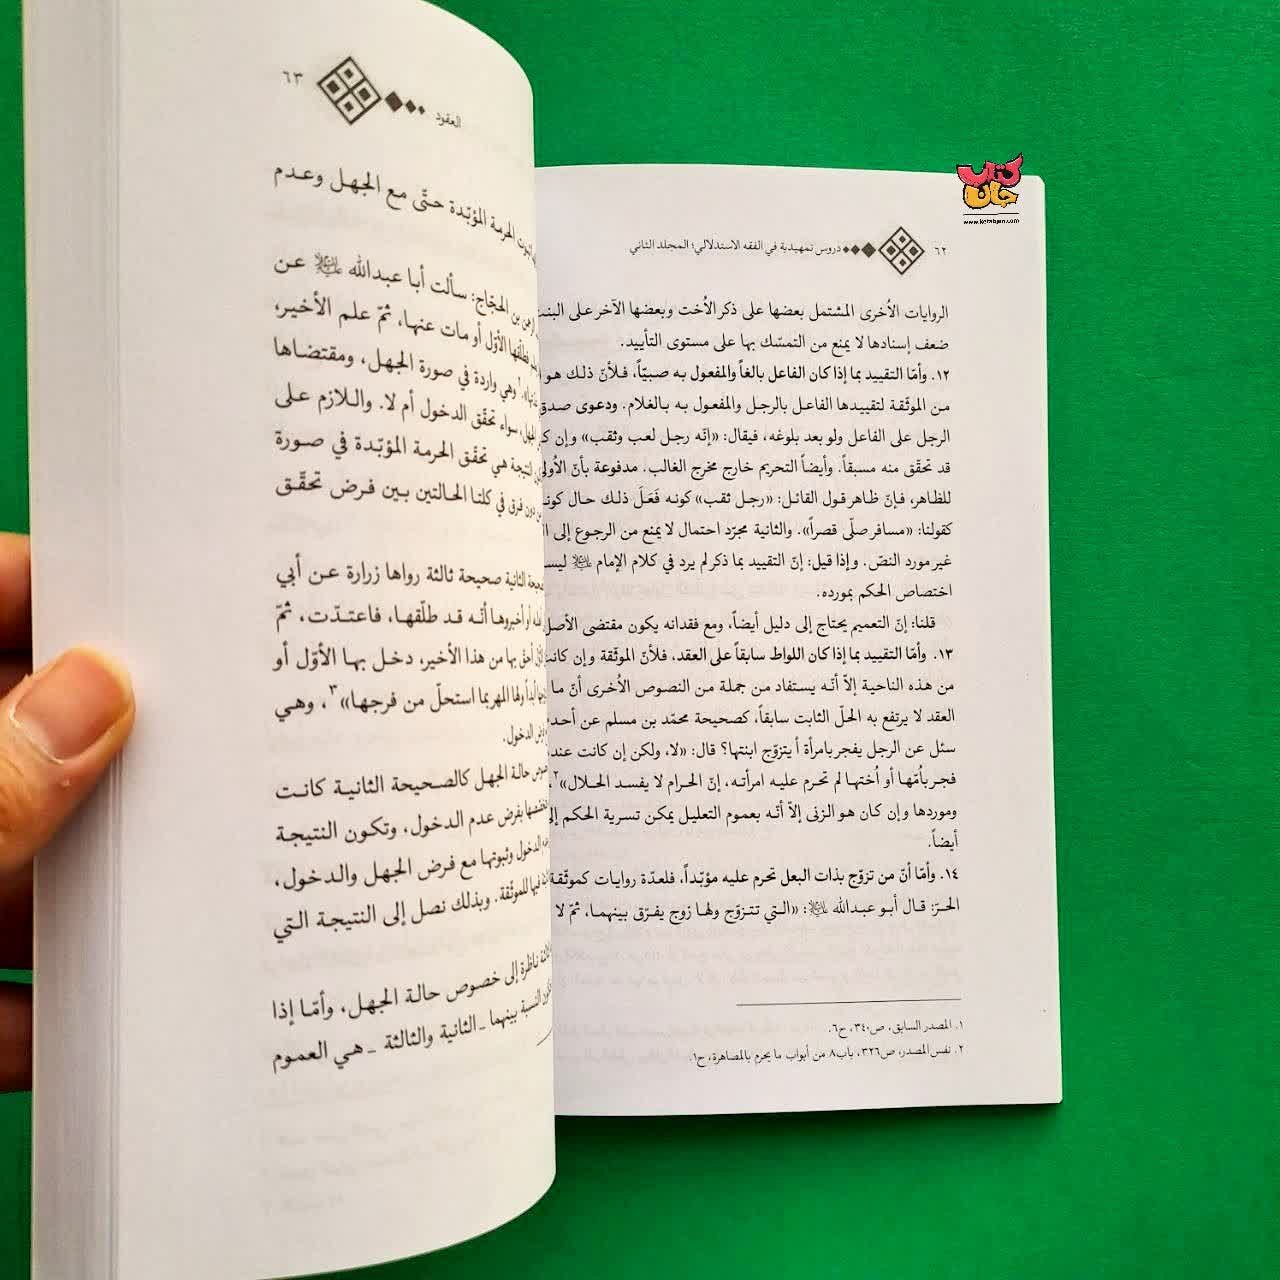 كتاب جان
www.ketabjan.com
٦٢ دروس تمهيدية في الفقه الاستدلالي؛ المجلد الثاني
الروايات الأُخرى المشتمل بعضها على ذكر الأُخت وبعضها الآخر على البنت
ضعف إسنادها لا يمنع من التمسّك بها على مستوى التأييد.
١٢. وأمّا التقييد بما إذا كان الفاعل بالغاً والمفعول به صبيّاً، فلأنّ ذلك هو
من الموثّقة لتقييدها الفاعل بالرجل والمفعول به بالغلام. ودعوى صدق
الرجل على الفاعل ولو بعد بلوغه، فيقال: «إنّه رجل لعب وثقب» وإن
قد تحقّق منه مسبقاً. وأيضاً التحريم خارج مخرج الغالب. مدفوعة بأنّ الأولى
للظاهر، فإنّ ظاهر قول القائل: «رجل ثقب» كونه فَعَلَ ذلك حال كونه
كقولنا: «مسافر صلّى قصراً». والثانية مجرّد احتمال لا يمنع من الرجوع إلى
غير مورد النصّ. وإذا قيل: إنّ التقييد بما ذكر لم يرد في كلام الإمام ليس
اختصاص الحكم بمورده.
قلنا: إنّ التعميم يحتاج إلى دليل أيضاً، ومع فقدانه يكون مقتضى الأصل
١٣. وأمّا التقييد بما إذا كان اللواط سابقاً على العقد، فلأنّ الموثّقة وإن كانت
من هذه الناحية إلاّ أنّه يستفاد من جملة من النصوص الأُخرى أنّ ما
العقد لا يرتفع به الحلّ الثابت سابقاً، كصحيحة محمّد بن مسلم عن أحد
سئل عن الرجل يفجر بامرأة أ يتزوّج ابنتها؟ قال: «لا، ولكن إن كانت عند
فجر بأُمّها أو أُختها لم تحرم عليه امرأته، إنّ الحرام لا يفسد الحلال»٢،
وموردها وإن كان هو الزنى إلاّ أنّه بعموم التعليل يمكن تسرية الحكم
أيضاً.
١٤. وأمّا أنّ من تزوّج بذات البعل تحرم عليه مؤبّداً، فلعدّة روايات كموثّقة
الحرّ: قال أبو عبدالله: «التي تتزوّج ولها زوج يفرّق بينهما، ثمّ لا
١. المصدر السابق، ص٣٤٠، ح٦.
٢. نفس المصدر، ص٣٢٦، باب٨ من أبواب ما يحرم بالمصاهرة، ح١.
العقود ٦٣
ثبوت الحرمة المؤبّدة حتّى مع الجهل وعدم
بن الحجّاج: سألت أبا عبدالله عن
فطلّقها الأوّل أو مات عنها، ثمّ علم الأخير،
وهي واردة في صورة الجهل، ومقتضاها
سواء تحقّق الدخول أم لا. واللازم على
النتيجة هي تحقّق الحرمة المؤبّدة في صورة
دون فرق في كلتا الحالتين بين فرض تحقّق
الثانية صحيحة ثالثة رواها زرارة عن أبي
أو أخبروها أنّه قد طلّقها، فاعتدّت، ثمّ
أحقّ بها من هذا الأخير، دخل بها الأوّل أو
أبداً ولها المهر بما استحلّ من فرجها»٣، وهي
الدخول.
حالة الجهل كالصحيحة الثانية كانت
بفرض عدم الدخول، وتكون النتيجة
الدخول وثبوتها مع فرض الجهل والدخول،
للموثّقة. وبذلك نصل إلى النتيجة التي
ناظرة إلى خصوص حالة الجهل، وأمّا إذا
النسبة بينهما ـ الثانية والثالثة ـ هي العموم